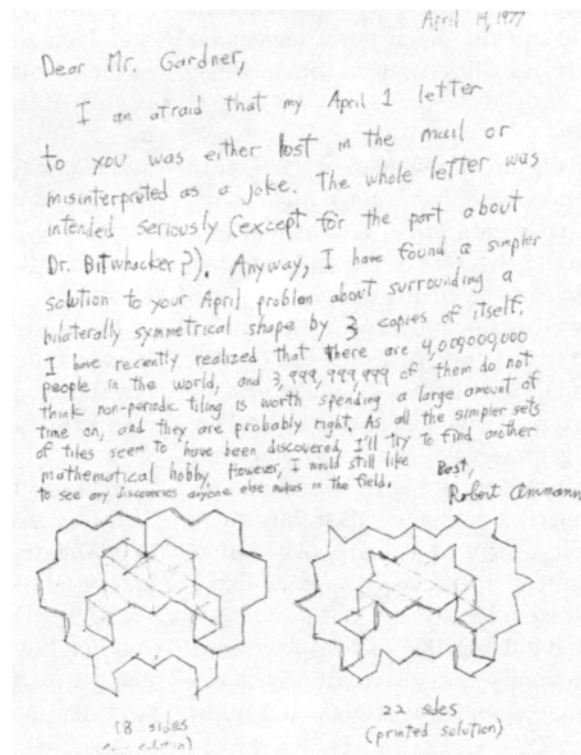 April 19, 1977
Dear Mr. Gardner,
I am afraid that my April 1 letter
to you was either lost in the mail or
misinterpreted as a joke. The whole letter was
intended seriously (except for the part about
Dr. Bitwhacker?). Anyway, I have found a simpler
solution to your April problem about surrounding a
bilaterally symmetrical shape by 3 copies of itself.
I have recently realized that there are 4,000,000,000
people in the world, and 3,999,999,999 of them do not
think non-periodic tiling is worth spending a large amount of
time on, and they are probably right. As all the simpler sets
of tiles seem to have been discovered, I'll try to find another
mathematical hobby. However, I would still like
to see any discoveries anyone else makes in the field.
Best,
Robert Ammann
18 sides
solution)
22 sides
(printed solution)